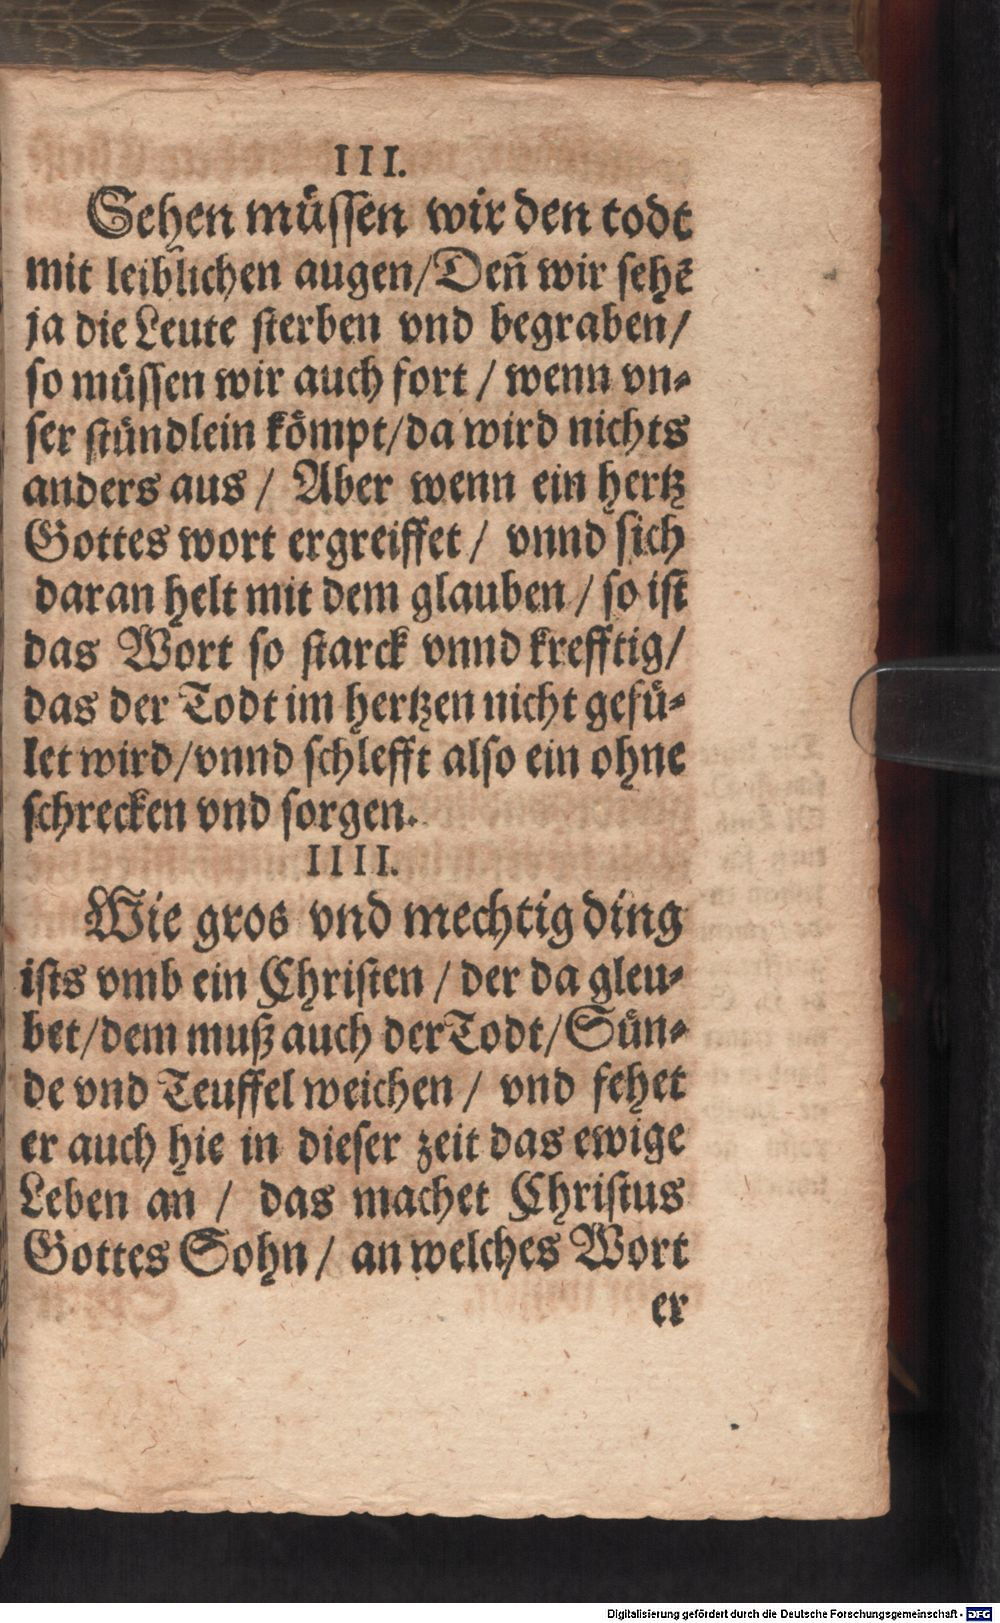 III.
Sehen müssen wir den todt
mit leiblichen augen/Deñ wir sehē
ja die Leute sterben vnd begraben/
so müssen wir auch fort / wenn vn-
ser stündlein kömpt/da wird nichts
anders aus / Aber wenn ein hertz
Gottes wort ergreiffet / vnnd sich
daran helt mit dem glauben / so ist
das Wort so starck vnnd krefftig/
das der Todt im hertzen nicht gefü-
let wird/vnnd schlefft also ein ohne
schrecken vnd sorgen.
IIII.
Wie gros vnd mechtig ding
ists vmb ein Christen / der da gleu-
bet/dem muß auch der Todt/Sün-
de vnd Teuffel weichen / vnd fehet
er auch hie in dieser zeit das ewige
Leben an / das machet Christus
Gottes Sohn / an welches Wort
er
Digitalisierung gefördert durch die Deutsche Forschungsgemeinschaft - DFG